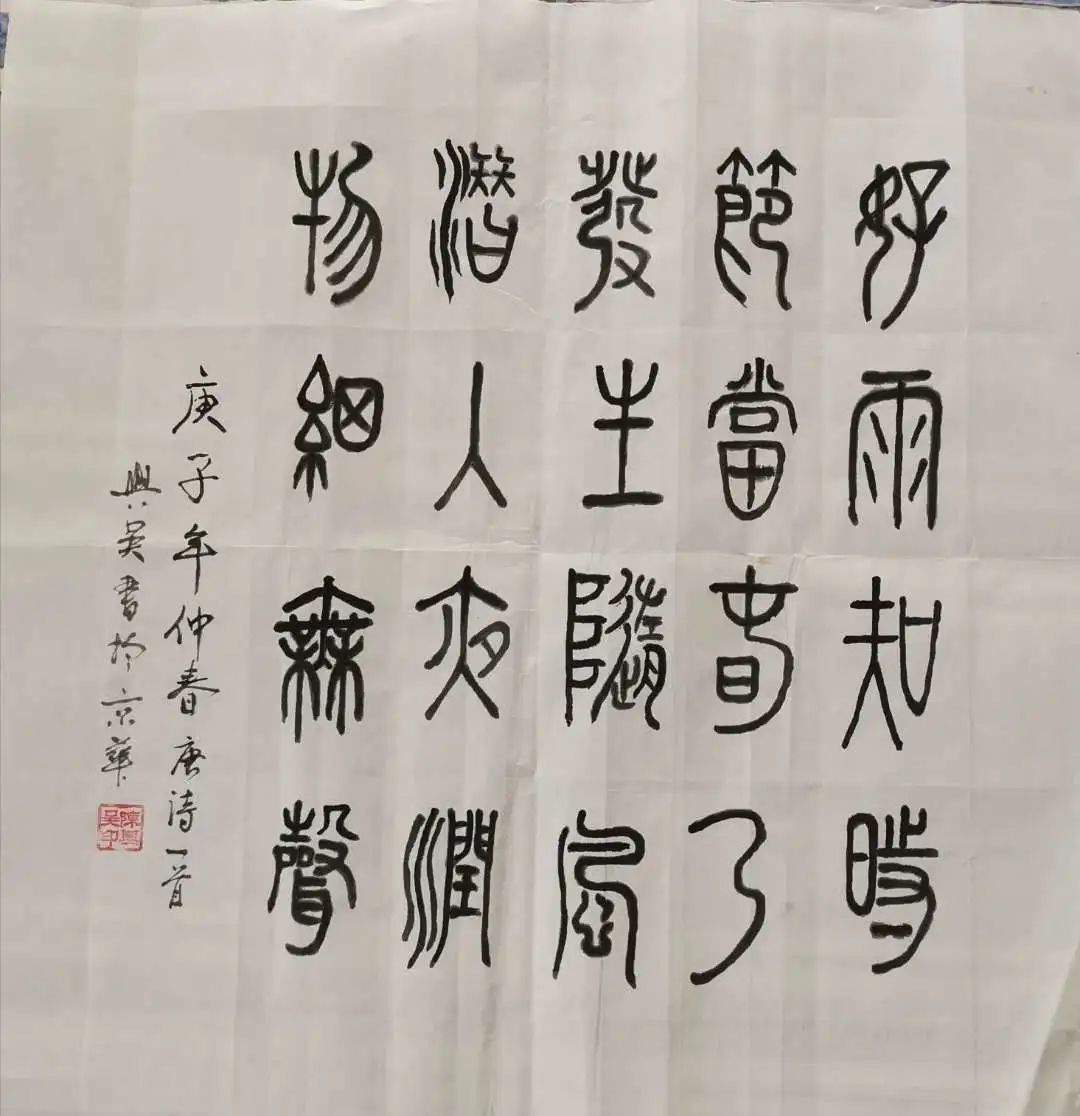 好雨知時
節當春乃
發生隨風
潛入夜潤
物細無聲
庚子年仲春唐詩一首
興吳書於京華
陳興吳印